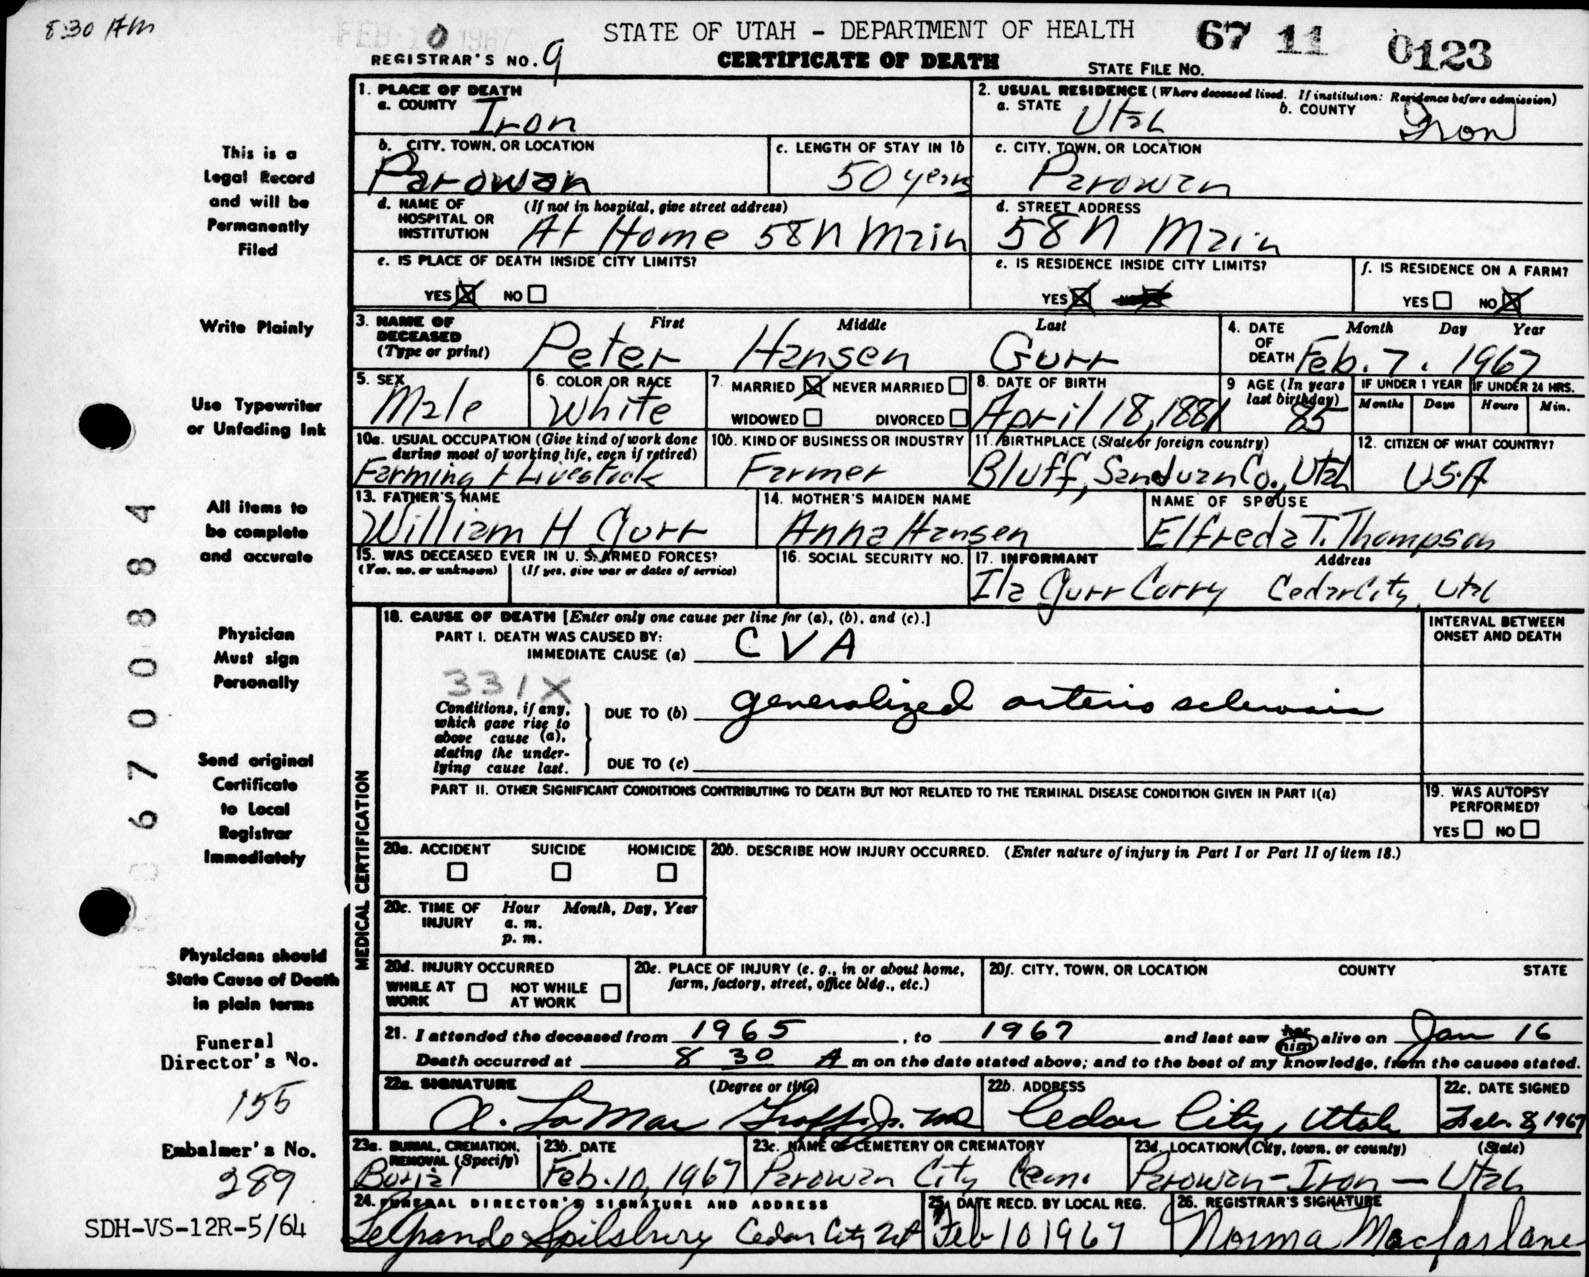 8:30 AM
FEB 10 1967
STATE OF UTAH - DEPARTMENT OF HEALTH
67 11 0123
REGISTRAR'S NO. 9
CERTIFICATE OF DEATH
STATE FILE NO.
1. PLACE OF DEATH
a. COUNTY Iron
2. USUAL RESIDENCE (Where deceased lived. If institution: Residence before admission)
a. STATE Utah b. COUNTY Iron
b. CITY, TOWN, OR LOCATION Parowan
c. LENGTH OF STAY IN 1b 50 years
c. CITY, TOWN, OR LOCATION Parowan
d. NAME OF HOSPITAL OR INSTITUTION (If not in hospital, give street address) At Home 58 N Main
d. STREET ADDRESS 58 N Main
e. IS PLACE OF DEATH INSIDE CITY LIMITS? YES ☒ NO ☐
e. IS RESIDENCE INSIDE CITY LIMITS? YES ☒
f. IS RESIDENCE ON A FARM? YES ☐ NO ☒
3. NAME OF DECEASED (Type or print) First Middle Last
Peter Hansen Gurr
4. DATE OF DEATH Month Day Year
Feb. 7, 1967
5. SEX Male
6. COLOR OR RACE White
7. MARRIED ☒ NEVER MARRIED ☐
WIDOWED ☐ DIVORCED ☐
8. DATE OF BIRTH April 18, 1881
9 AGE (In years last birthday) 85
IF UNDER 1 YEAR Months Days
IF UNDER 24 HRS. Hours Min.
10a. USUAL OCCUPATION (Give kind of work done during most of working life, even if retired)
Farming & Livestock
10b. KIND OF BUSINESS OR INDUSTRY Farmer
11. BIRTHPLACE (State or foreign country) Bluff, San Juan Co., Utah
12. CITIZEN OF WHAT COUNTRY? U.S.A
13. FATHER'S NAME William H Gurr
14. MOTHER'S MAIDEN NAME Anna Hansen
NAME OF SPOUSE Elfreda T. Thompson
15. WAS DECEASED EVER IN U. S. ARMED FORCES?
(Yes, no, or unknown) (If yes, give war or dates of service)
16. SOCIAL SECURITY NO.
17. INFORMANT Address
Ila Gurr Corry Cedar City, Utah
18. CAUSE OF DEATH [Enter only one cause per line for (a), (b), and (c).]
INTERVAL BETWEEN ONSET AND DEATH
PART I. DEATH WAS CAUSED BY:
IMMEDIATE CAUSE (a) CVA
331X
Conditions, if any, which gave rise to above cause (a), stating the underlying cause last.
DUE TO (b) generalized arterio sclerosis
DUE TO (c)
PART II. OTHER SIGNIFICANT CONDITIONS CONTRIBUTING TO DEATH BUT NOT RELATED TO THE TERMINAL DISEASE CONDITION GIVEN IN PART I(a)
19. WAS AUTOPSY PERFORMED?
YES ☐ NO ☐
MEDICAL CERTIFICATION
20a. ACCIDENT SUICIDE HOMICIDE
☐ ☐ ☐
20b. DESCRIBE HOW INJURY OCCURRED. (Enter nature of injury in Part I or Part II of item 18.)
20c. TIME OF INJURY Hour Month, Day, Year
a. m.
p. m.
20d. INJURY OCCURRED
WHILE AT WORK ☐ NOT WHILE AT WORK ☐
20e. PLACE OF INJURY (e. g., in or about home, farm, factory, street, office bldg., etc.)
20f. CITY, TOWN, OR LOCATION COUNTY STATE
21. I attended the deceased from 1965, to 1967 and last saw her him alive on Jan 16
Death occurred at 8 30 A m on the date stated above; and to the best of my knowledge, from the causes stated.
22a. SIGNATURE (Degree or title)
A. LaMar Graff Jr. MD
22b. ADDRESS Cedar City, Utah
22c. DATE SIGNED Feb. 8, 1967
23a. BURIAL, CREMATION, REMOVAL (Specify) Burial
23b. DATE Feb. 10, 1967
23c. NAME OF CEMETERY OR CREMATORY Parowan City Cem.
23d. LOCATION (City, town, or county) (State)
Parowan - Iron - Utah
24. FUNERAL DIRECTOR'S SIGNATURE AND ADDRESS
LeGrande Spilsbury Cedar City Ut
25. DATE RECD. BY LOCAL REG. Feb 10 1967
26. REGISTRAR'S SIGNATURE Norma Macfarlane
This is a
Legal Record
and will be
Permanently
Filed
Write Plainly
Use Typewriter
or Unfading Ink
All items to
be complete
and accurate
Physician
Must sign
Personally
Send original
Certificate
to Local
Registrar
Immediately
Physicians should
State Cause of Death
in plain terms
Funeral
Director's No.
155
Embalmer's No.
289
SDH-VS-12R-5/64
06700884